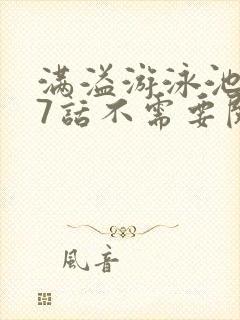 满溢游泳池
7話不需要
風音